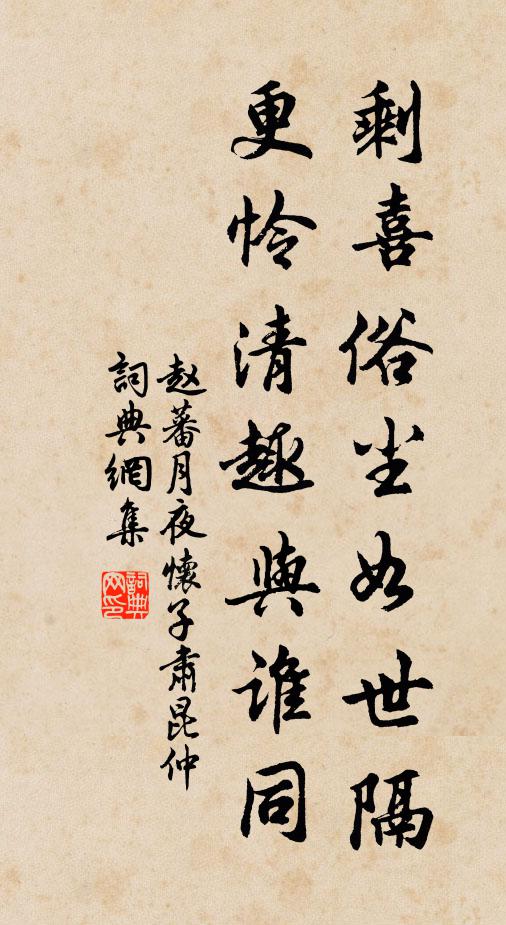 剩喜俗尘如世隔
更怜清趣與谁同
赵蕃月夜懷子肃昆仲
詞典網集
詞典网印